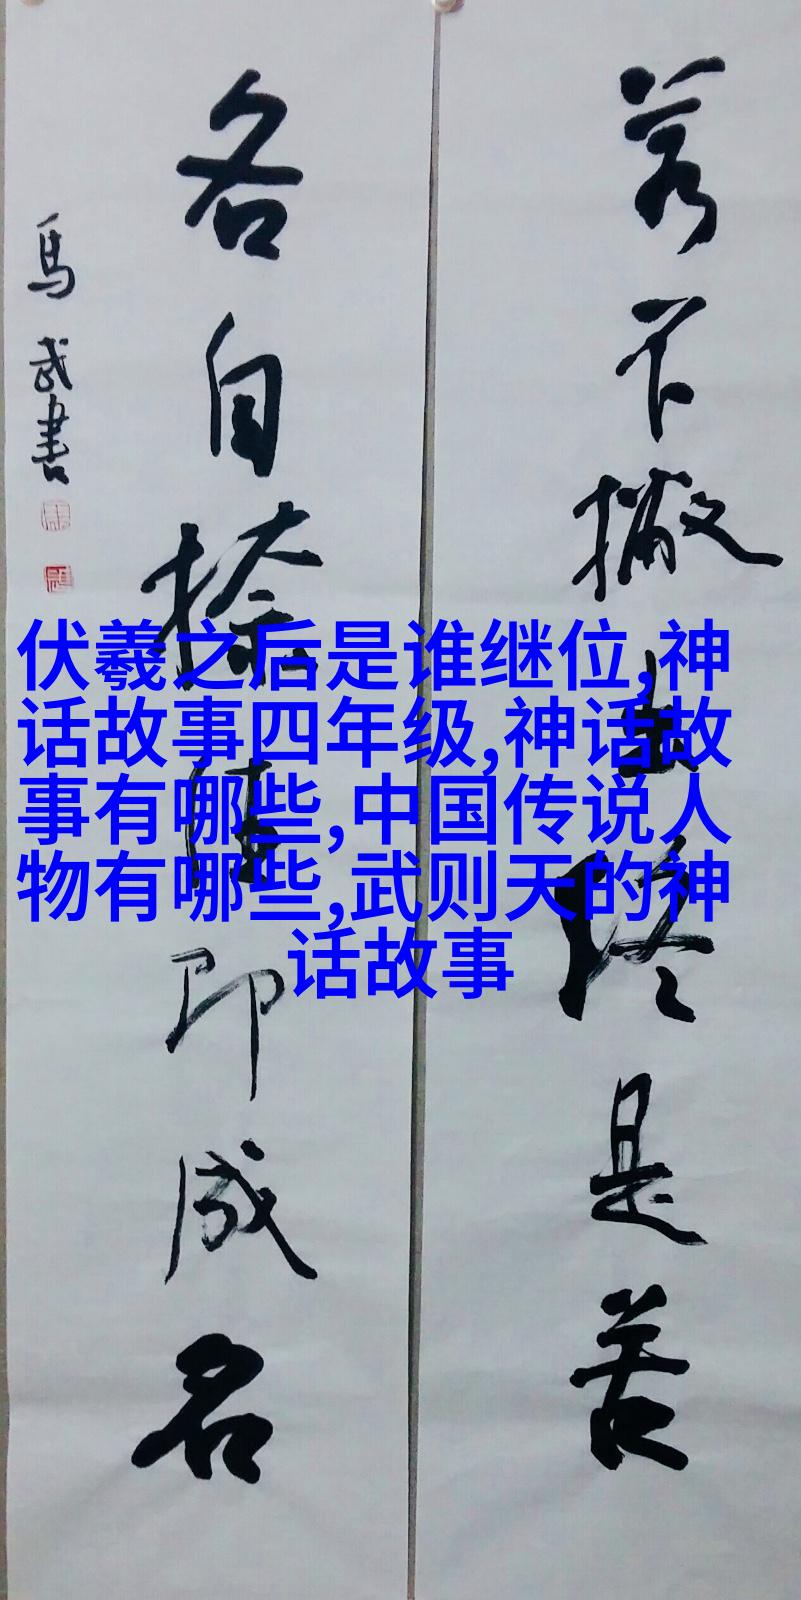 若不撇出终是苦
各自捺住即成名
馬武書
伏羲之后是谁继位,神
话故事四年级,神话故
事有哪些,中国传说人
物有哪些,武则天的神
话故事